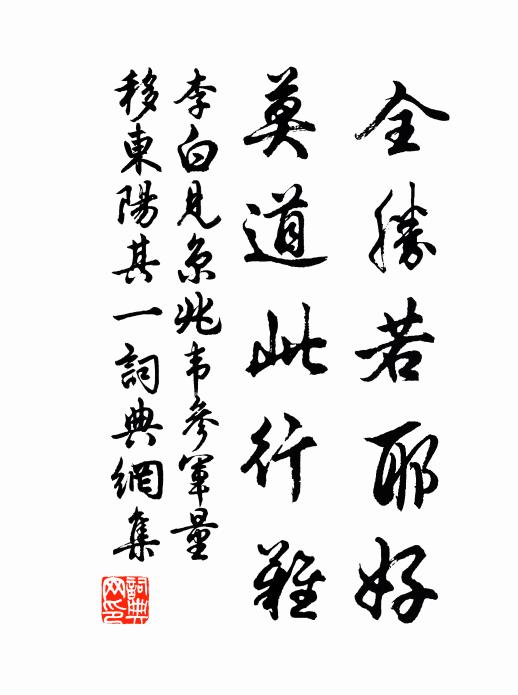 全勝若耶好
莫道此行難
李白見京兆韦參軍量
移東陽其一詞典網集
詞典
网印